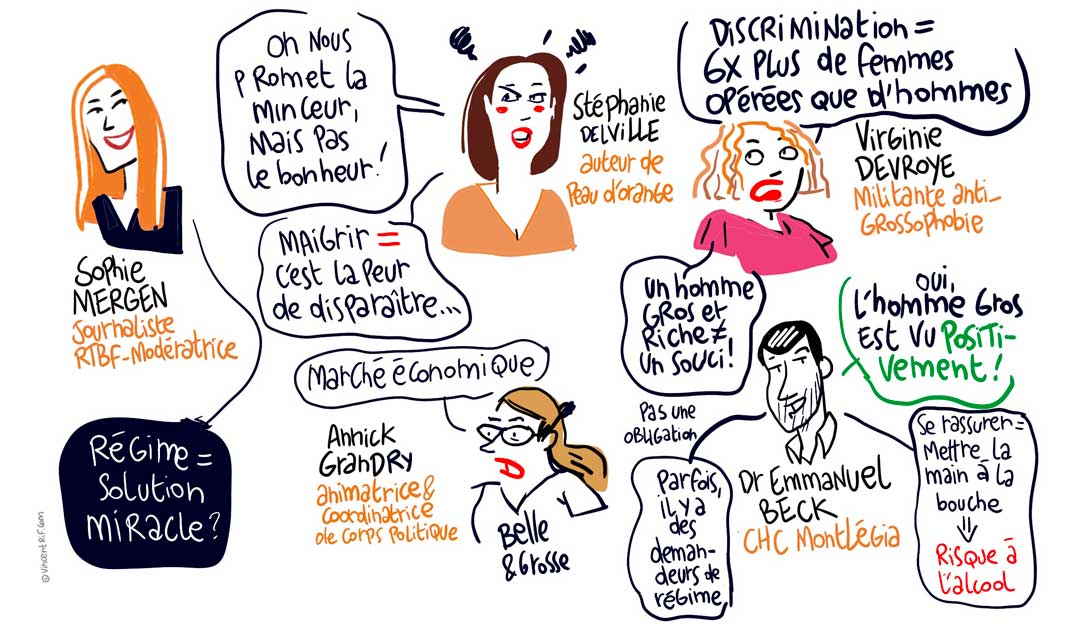 Sophie
MERGEN
Journaliste
RTBF-Modératrice
RÉGIME =
Solution
MIRACLE?
Oh NOUS
PROMET la
MINCEUR,
MAIS PAS
le bonheur!
Stéphanie
DELVILLE
auteur de
Peau d'orange
MAIGRIR =
c'est la Peur
de disparaître...
DISCRIMINATION =
6X Plus de femmes
OPÉRÉES que d'hommes
Virginie
DEVROYE
Militante anti-
GROSSOPHOBIE
un homme
GROS et
Riche ≠
un souci!
Marché économique
Annick
GRANDRY
animatrice &
coordinatrice
de Corps Politique
Belle
& Grosse
OUI,
L'homme GROS
EST VU POSITI-
VEMENT!
PAS UNE
OBLIGATION
Parfois,
il y a
des
deman-
deurs de
régime
Dr Emmanuel
BECK
CHC Montlégia
Se rassurer =
Mettre la
main à la
bouche
⇓
Risque à
l'alcool
© VINCENTRIF.COM